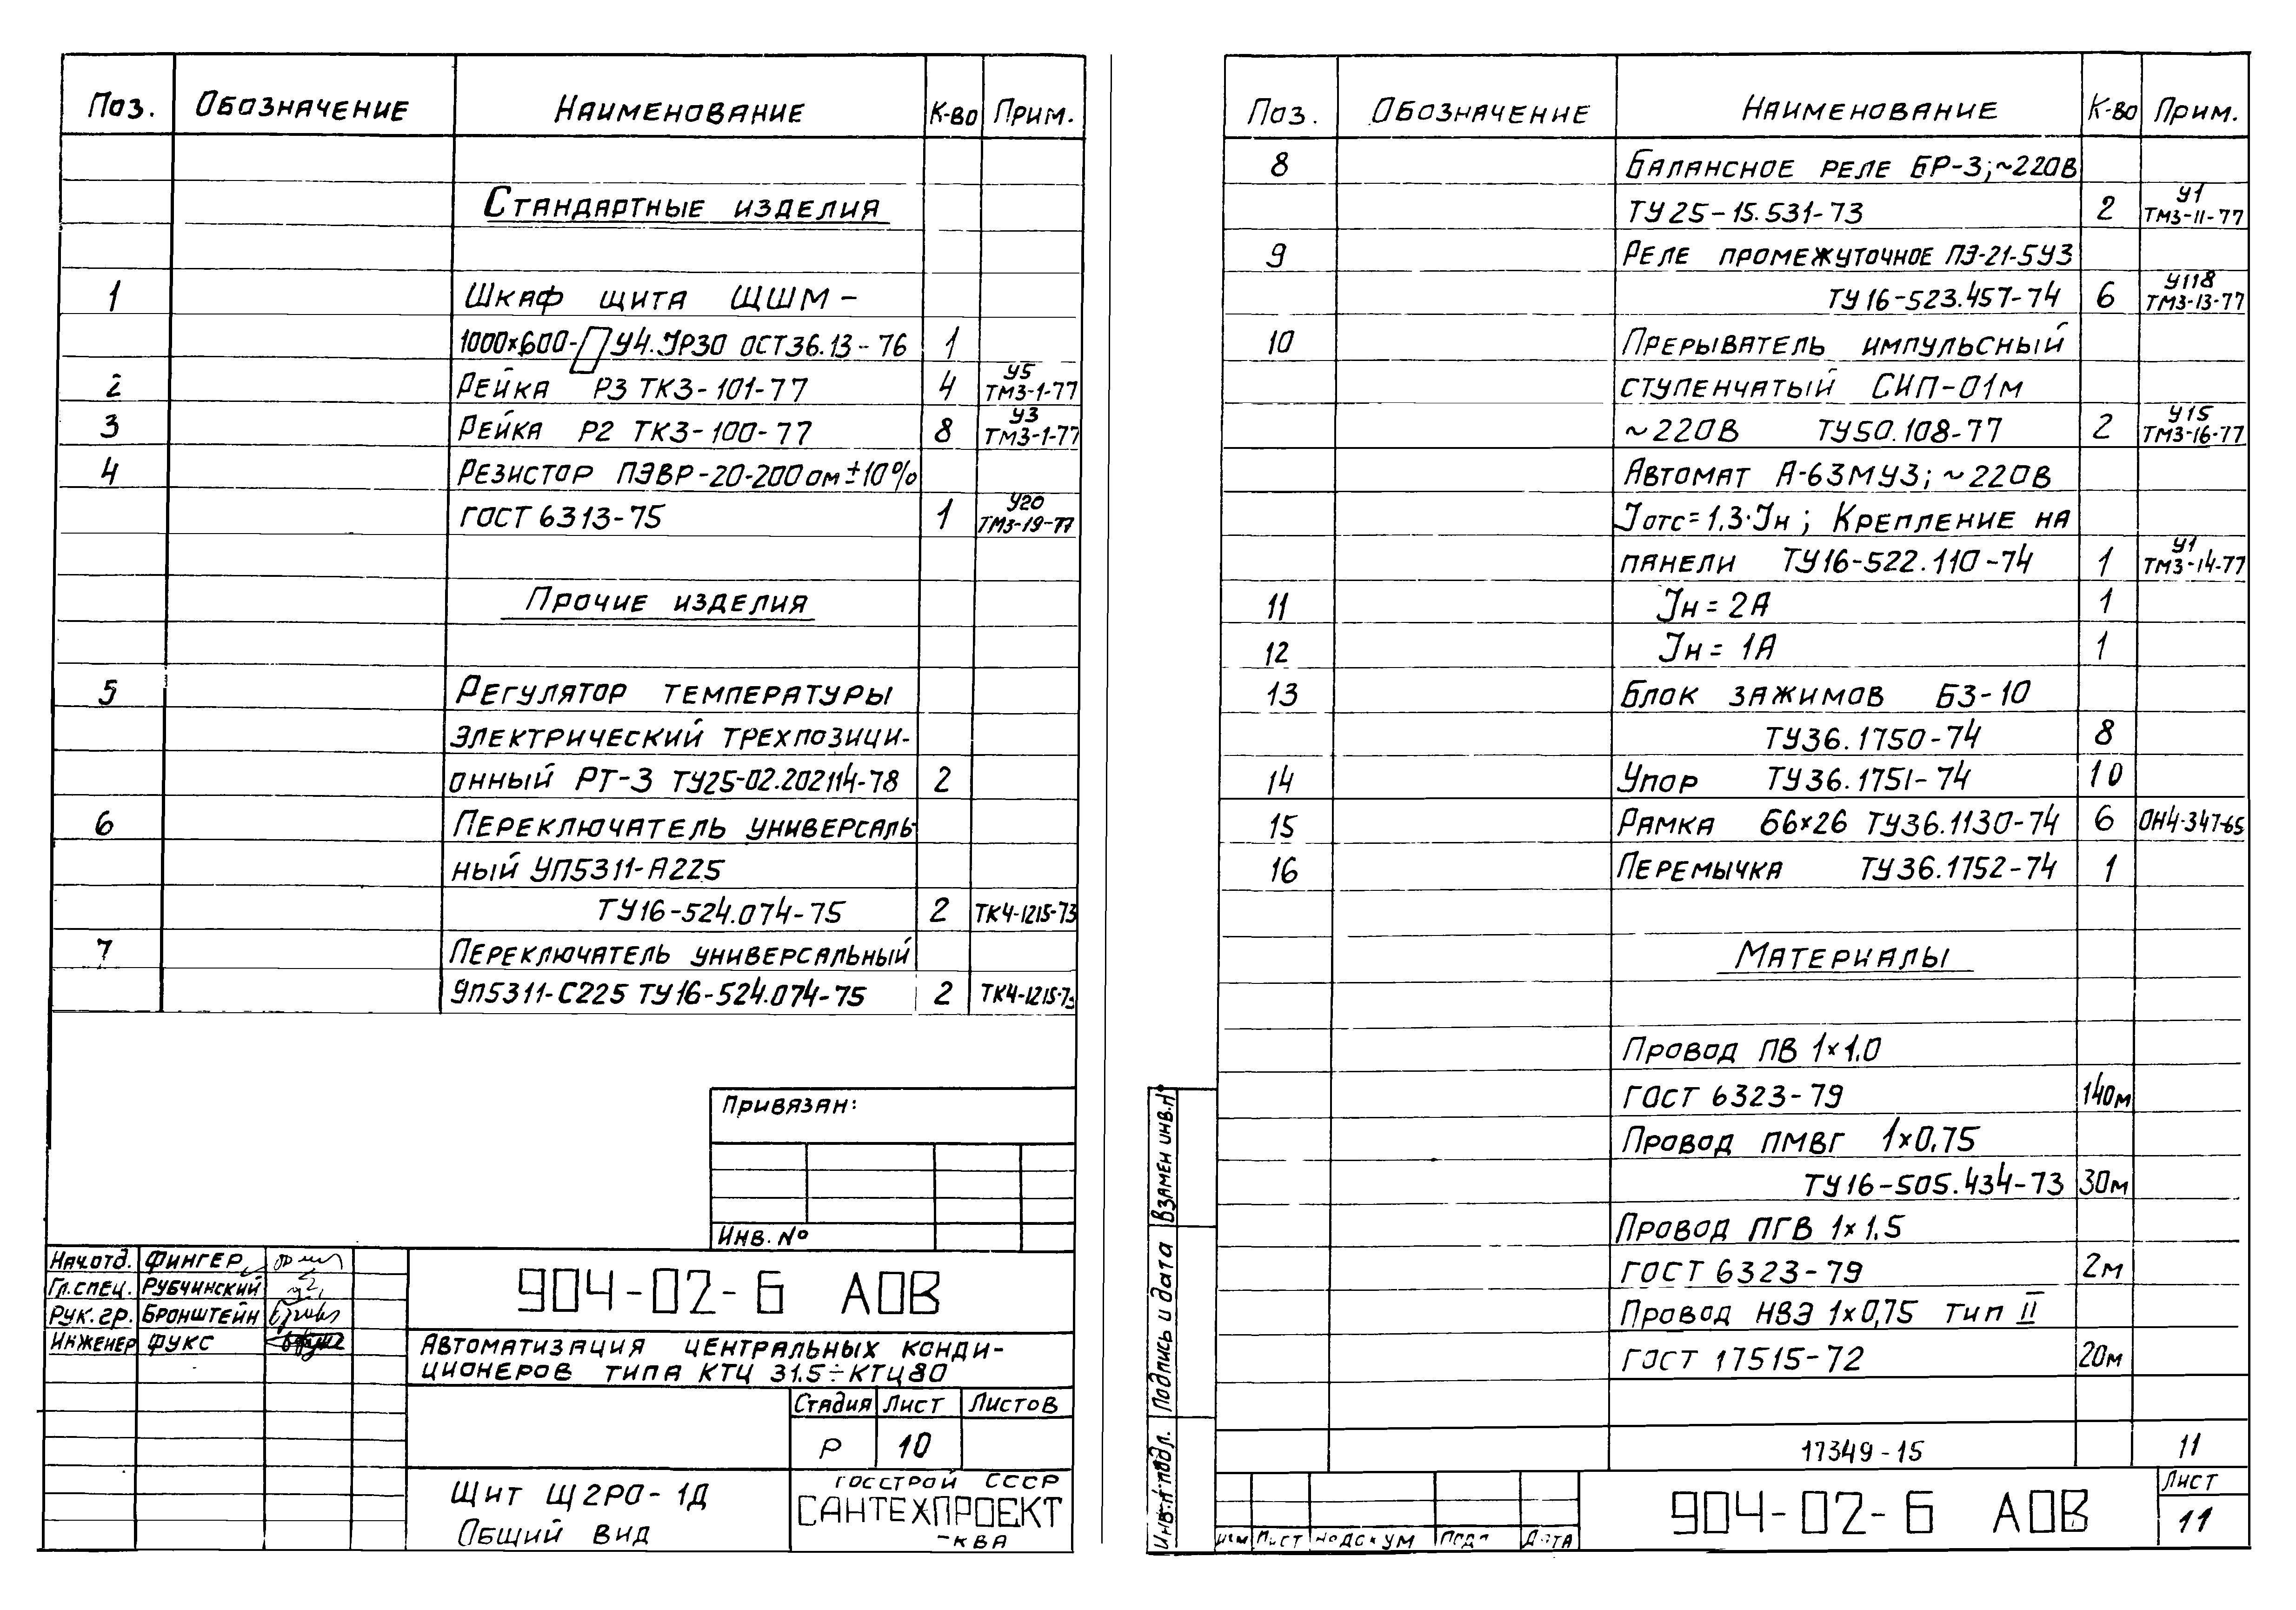 Поз. Обозначение Наименование К-во Прим.
Стандартные изделия
1 Шкаф щита ЩШМ-
1000×600-П У4.IP30 ОСТ36.13-76 1
2 Рейка Р3 ТК3-101-77 4 У5 ТМ3-1-77
3 Рейка Р2 ТК3-100-77 8 У3 ТМ3-1-77
4 Резистор ПЭВР-20-200 Ом ±10%
ГОСТ 6313-75 1 У20 ТМ3-19-77
Прочие изделия
5 Регулятор температуры
электрический трехпозици-
онный РТ-3 ТУ25-02.202114-78 2
6 Переключатель универсаль-
ный УП5311-А225
ТУ16-524.074-75 2 ТК4-1215-73
7 Переключатель универсальный
УП5311-С225 ТУ16-524.074-75 2 ТК4-1215-73
Привязан:
Инв. №
Нач.отд. Фингер
Гл.спец. Рубчинский
Рук.гр. Бронштейн
Инженер Фукс
904-02-6 АОВ
Автоматизация центральных конди-
ционеров типа КТЦ 31.5÷КТЦ80
Стадия Лист Листов
Р 10
Щит Щ2РО-1Д
Общий вид
Госстрой СССР
САНТЕХПРОЕКТ
-КВА
Поз. Обозначение Наименование К-во Прим.
8 Балансное реле БР-3; ~220В
ТУ25-15.531-73 2 У1 ТМ3-11-77
9 Реле промежуточное ПЭ-21-5У3
ТУ16-523.457-74 6 У118 ТМ3-13-77
10 Прерыватель импульсный
ступенчатый СИП-01м
~220В ТУ50.108-77 2 У15 ТМ3-16-77
Автомат А-63МУ3; ~220В
Iотс=1,3·Iн; Крепление на
панели ТУ16-522.110-74 1 У1 ТМ3-14-77
11 Iн = 2А 1
12 Iн = 1А 1
13 Блок зажимов БЗ-10
ТУ36.1750-74 8
14 Упор ТУ36.1751-74 10
15 Рамка 66×26 ТУ36.1130-74 6 ОН4-347-65
16 Перемычка ТУ36.1752-74 1
Материалы
Провод ПВ 1×1,0
ГОСТ 6323-79 140м
Провод ПМВГ 1×0,75
ТУ16-505.434-73 30м
Провод ПГВ 1×1,5
ГОСТ 6323-79 2м
Провод НВЭ 1×0,75 тип II
ГОСТ 17515-72 20м
17349-15 11
Взамен инв.№
Подпись и дата
Инв.№ подл.
Изм Лист №докум Подп Дата
904-02-6 АОВ
Лист
11